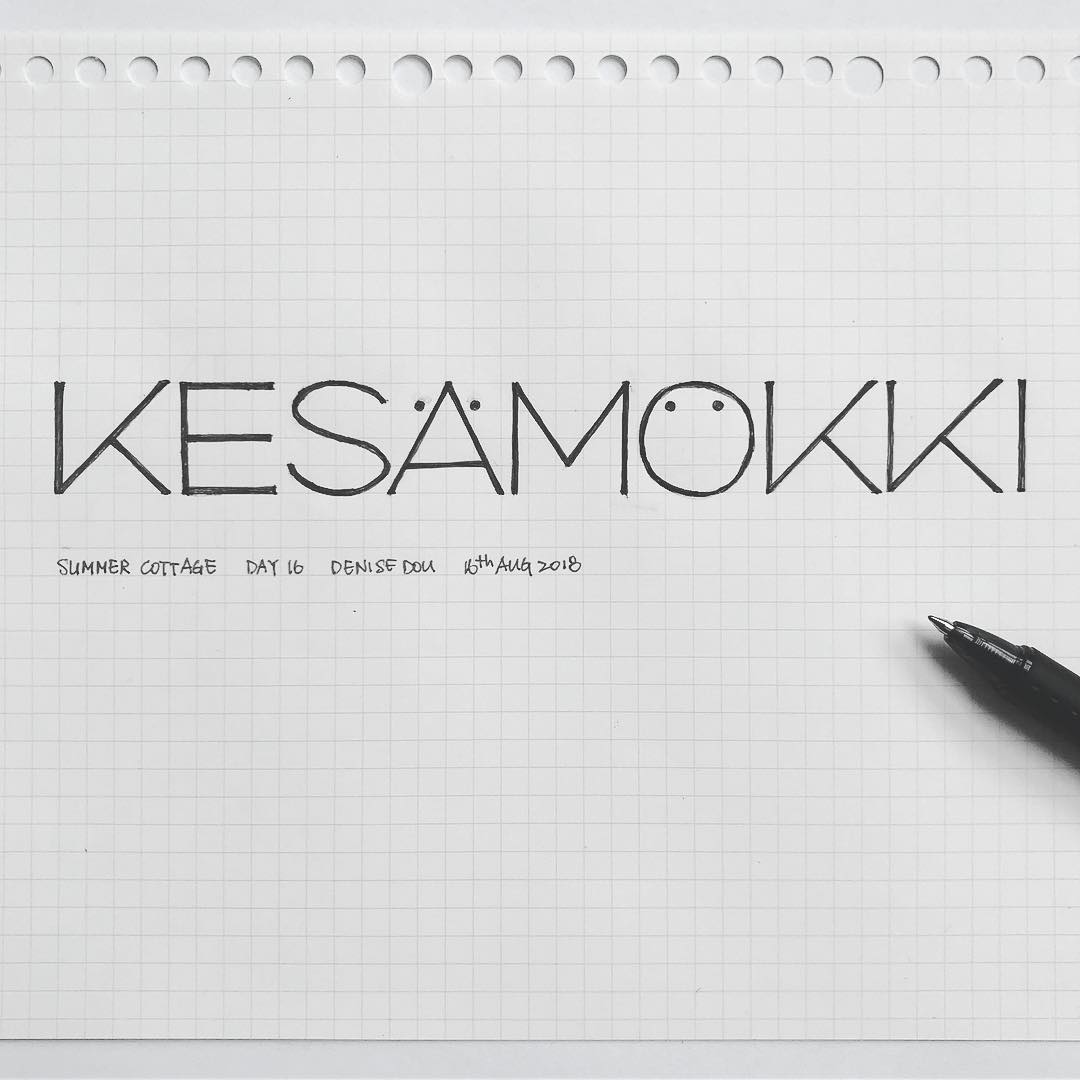 KESÄMÖKKI
SUMMER COTTAGE DAY 16 DENISE DOU 16th AUG 2018